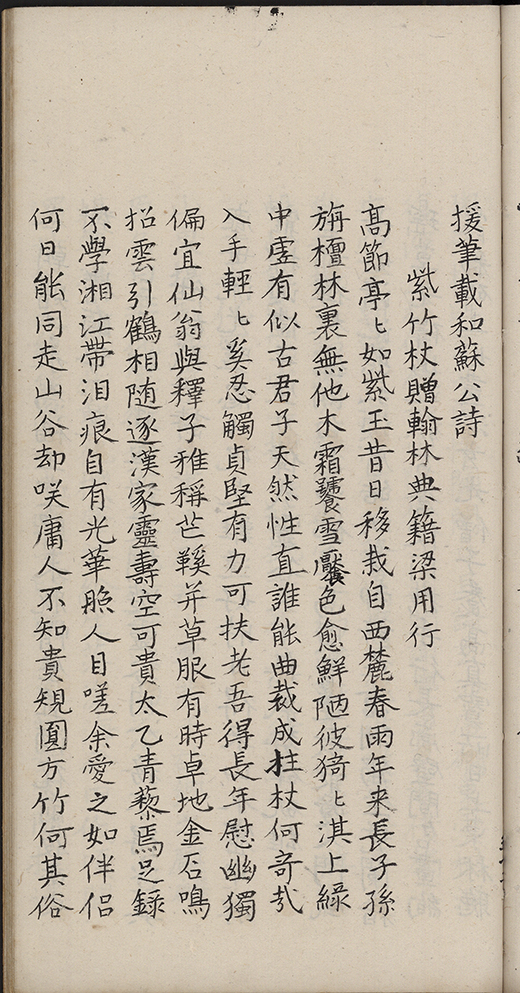 援筆載和蘇公詩
紫竹杖贈翰林典籍梁用行
高節亭〻如紫玉昔日移栽自西麓春雨年来長子孫
旃檀林裏無他木霜饕雪饜色愈鮮陋彼猗〻淇上綠
中虛有似古君子天然性直誰能曲裁成拄杖何奇㢤
入手輕〻奚忍觸貞堅有力可扶老吾得長年慰幽獨
偏宜仙翁與釋子雅稱芒鞵并草服有時卓地金石鳴
招雲引鶴相随逐漢家靈壽空可貴太乙青藜焉足錄
不學湘江帶泪痕自有光華照人目嗟余愛之如伴侶
何日能同走山谷却咲庸人不知貴規圓方竹何其俗